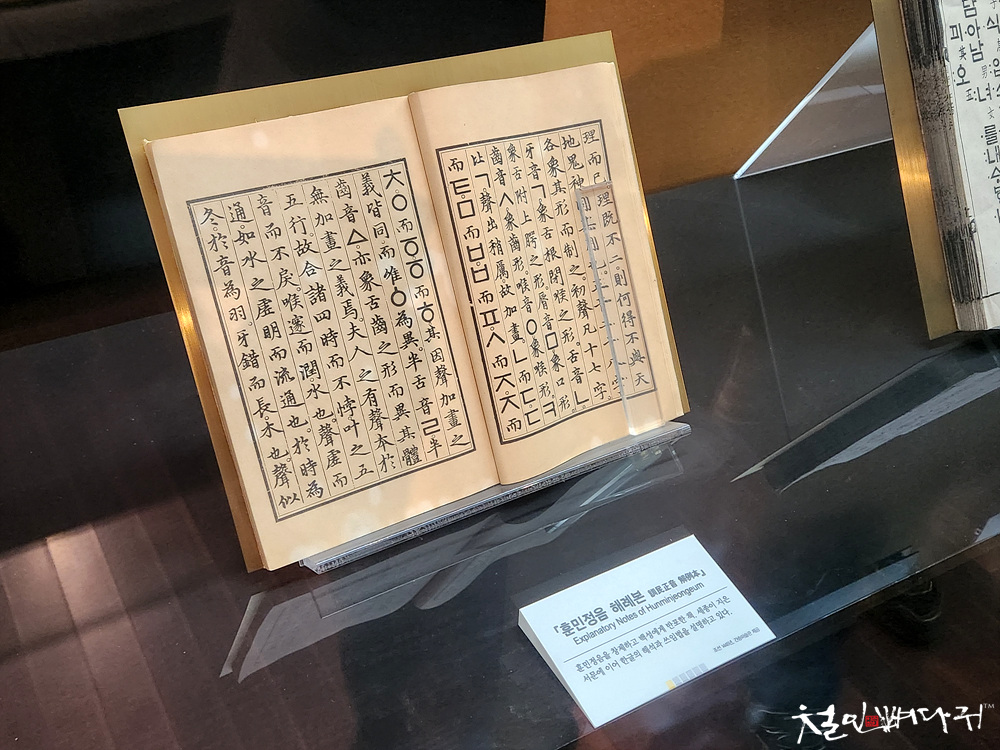 理而已。理旣不二。則何得不與天
地鬼神同其用也。正音二十八字。
各象其形而制之。初聲凡十七字。
牙音ㄱ。象舌根閉喉之形。舌音ㄴ。
象舌附上腭之形。脣音ㅁ。象口形。
齒音ㅅ。象齒形。喉音ㅇ。象喉形。ㅋ
比ㄱ。聲出稍厲。故加畫。ㄴ而ㄷ。ㄷ
而ㅌ。ㅁ而ㅂ。ㅂ而ㅍ。ㅅ而ㅈ。ㅈ而
ㅊ。ㅇ而ㆆ。ㆆ而ㅎ。其因聲加畫之
義皆同。而惟ㆁ為異。半舌音ㄹ。半
齒音ㅿ。亦象舌齒之形而異其體。
無加畫之義焉。夫人之有聲本於
五行。故合諸四時而不悖。叶之五
音而不戾。喉邃而潤。水也。聲虛而
通。如水之虛明而流通也。於時為
冬。於音為羽。牙錯而長。木也。聲似
『훈민정음 해례본 訓民正音 解例本』
Explanatory Notes of Hunminjeongeum
훈민정음을 창제하고 백성에게 반포한 책. 세종이 지은
서문에 이어 한글의 해석과 쓰임법을 설명하고 있다.
철민뼈다귀™